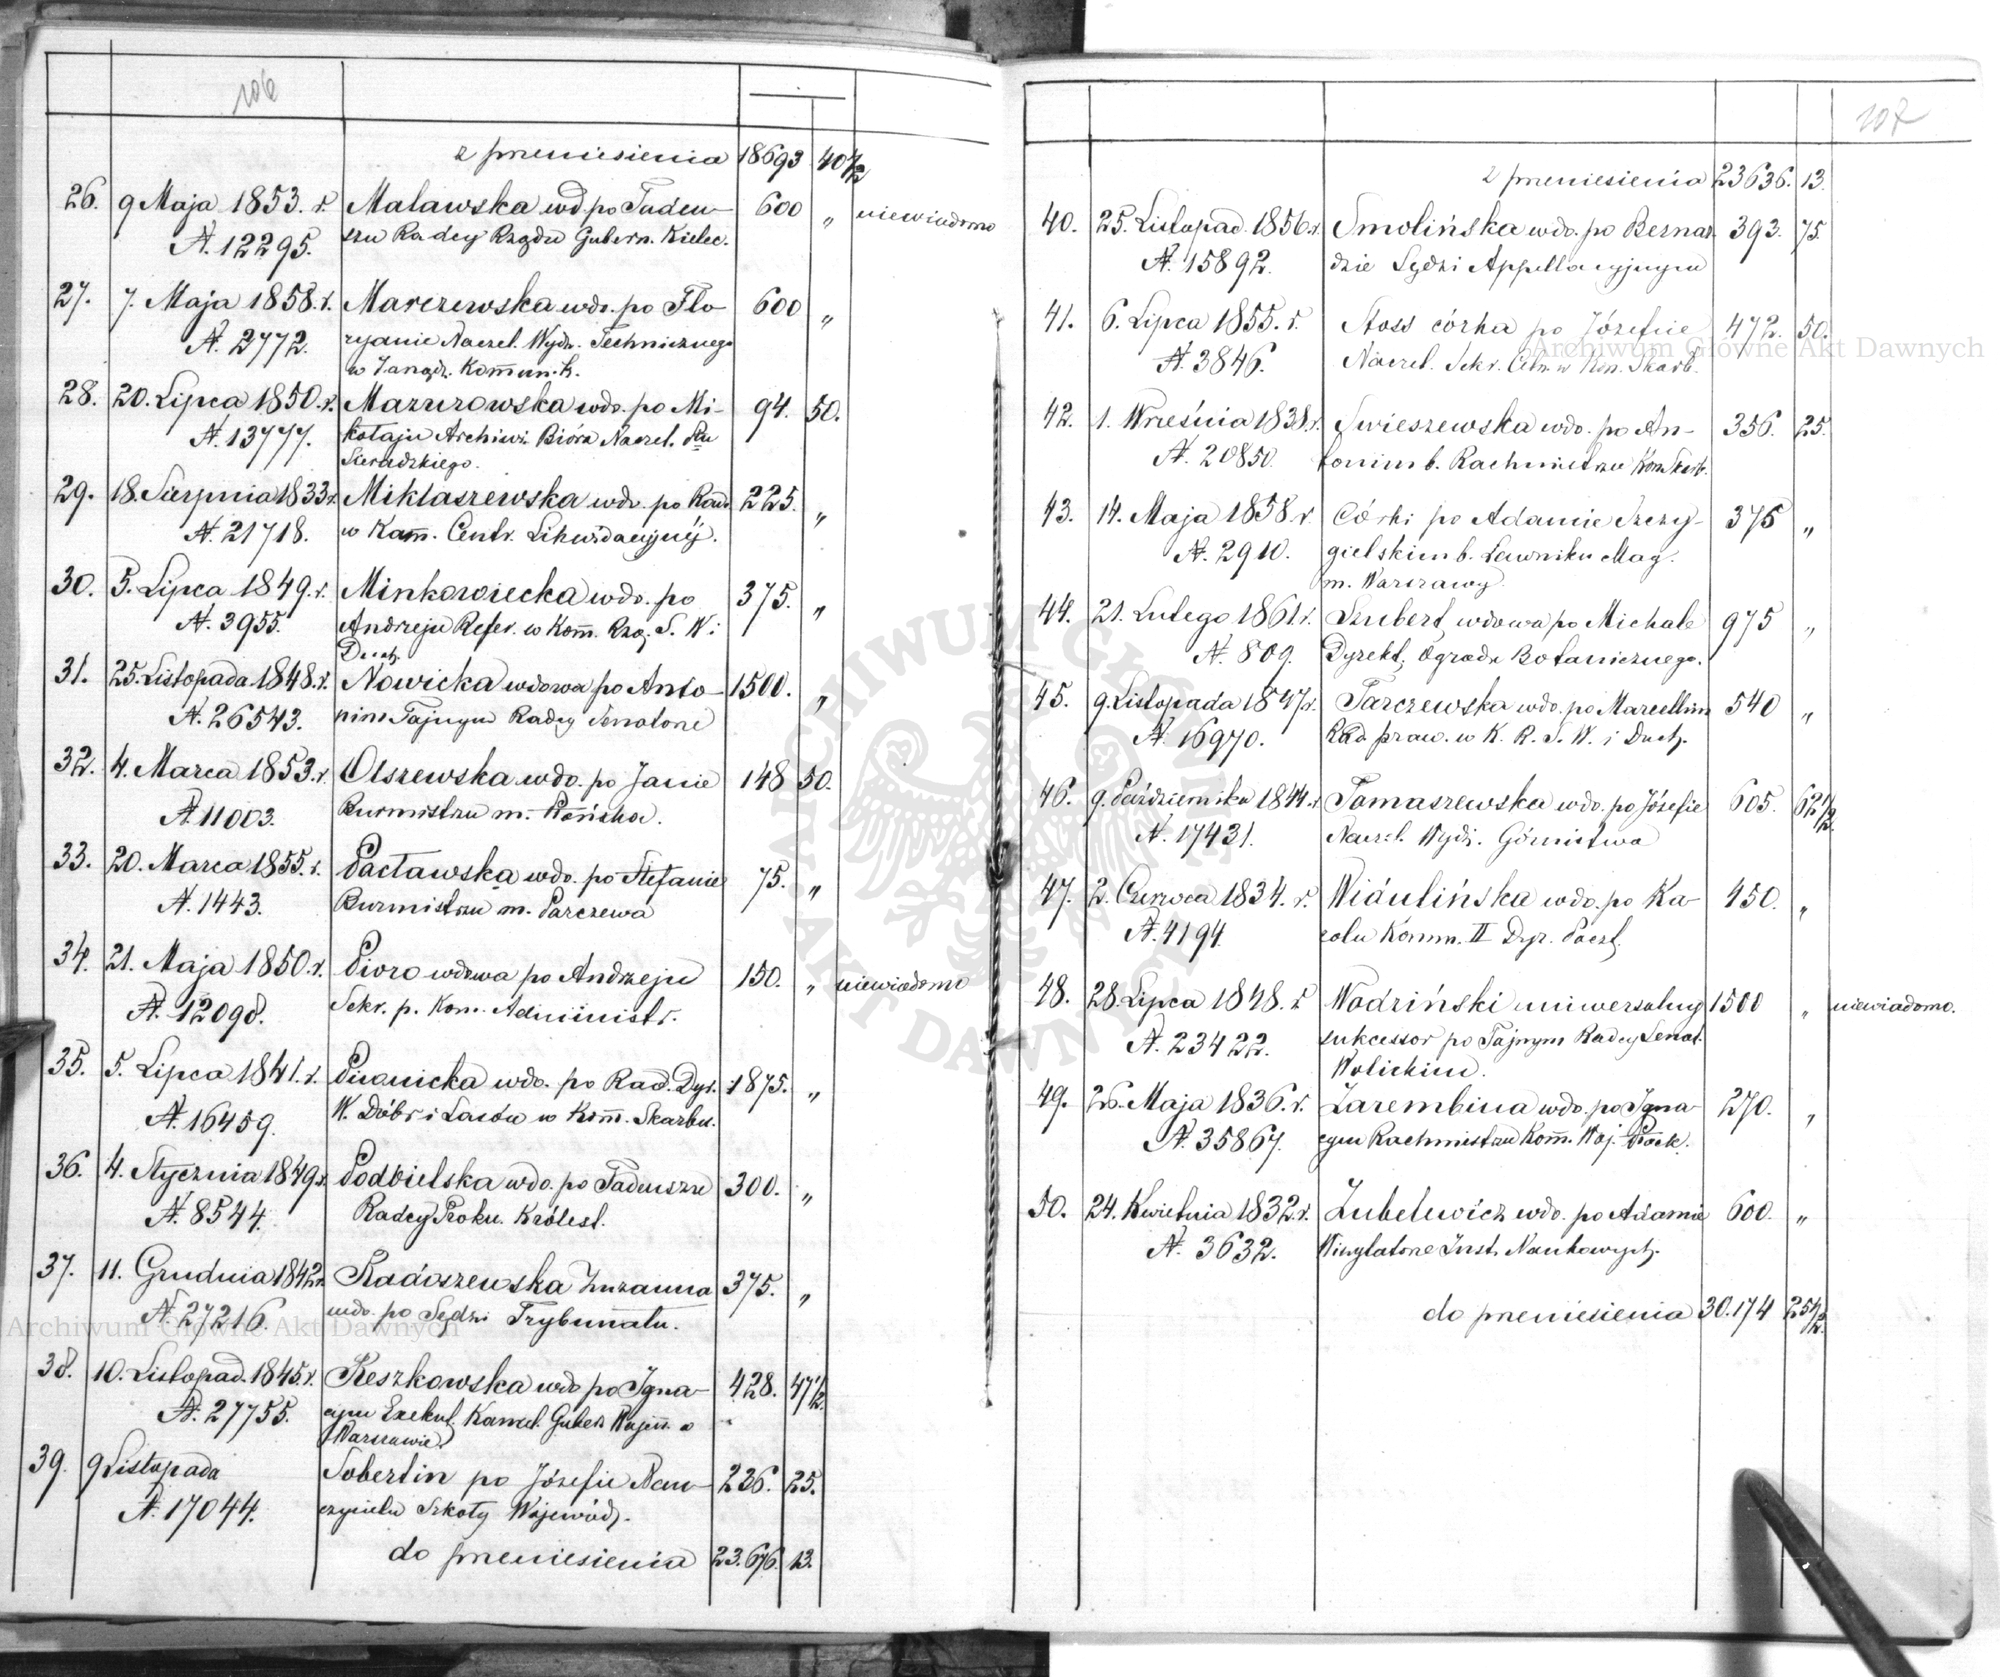 106
z przeniesienia 18693 40 1/2
26. 9 Maja 1853. r. Malawska wd. po Tadeu- 600 „ niewiadomo
N. 12295. szu Radcy Rządu Gubern. Kielec.
27. 7. Maja 1858. r. Marczewska wdo. po Flo- 600 „
N. 2772. ryanie Naczel. Wydz. Technicznego
w Zarząd. Komun. K.
28. 20. Lipca 1850. r. Mazurowska wdo. po Mi- 94. 50.
N. 13777. kołaju Archiwi. Bióra Naczel. Ptu
Sieradzkiego.
29. 18. Sierpnia 1833 r. Miklaszewska wdo. po Rad. 225. „
N. 21718. w Kom. Centr. Likwidacyjnéj.
30. 5. Lipca 1849. r. Minkowiecka wdo. po 375. „
N. 3955. Andrzeju Refer. w Kom. Rzą. S. W. i
Duch.
31. 25. Listopada 1848. r. Nowicka wdowa po Anto- 1500. „
N. 26543. nim Tajnym Radcy Senatorze
32. 4. Marca 1853. r. Olszewska wdo. po Janie 148 50.
N. 11003. Burmistrzu m. Płońska.
33. 20. Marca 1855. r. Pacławska wdo. po Stefanie 75. „
N. 1443. Burmistrzu m. Parczewa
34. 21. Maja 1850. r. Pioro wdowa po Andrzeju 150. „ niewiadomo
N. 12098. Sekr. p. Kom. Administr.
35. 5. Lipca 1841. r. wdo. po Rad. Dyr. 1875. „
N. 16459. W. Dóbr i Lasów w Kom. Skarbu.
36. 4. Stycznia 1849 r. Podbielska wdo. po Tadeuszu 300. „
N. 8544. Radcy Proku. Królest.
37. 11. Grudnia 1842 r. Radoszewska Zuzanna 375. „
N. 27216. wdo. po Sędzi Trybunału.
38. 10. Listopad. 1845. r. Reszkowska wdo po Igna- 428. 47 1/2
N. 27755. cym Exekut. Kancel. Guber. Wojen. w
Warszawie.
39. 9 Listopada Sobertin po Józefie Nau- 226. 25.
N. 17044. czycielu Szkoły Wojewódz.
do przeniesienia 23.636. 13.
107
z przeniesienia 23636. 13.
40. 25. Listopad. 1856. r. Smolińska wdo. po Bernar- 393. 75.
N. 15892. dzie Sędzi Appellacyjnym
41. 6. Lipca 1855. r. Stoss córka po Józefie 472. 50.
N. 3846. Naczel. Sekr. w Kom. Skarb.
42. 1. Września 1838. r. Swieszewska wdo. po An- 356. 25.
N. 20850. tonim b. Rachmistrzu Kom. Skarb.
43. 14. Maja 1858. r. Córki po Adamie Szczy- 375 „
N. 2910. gielskim b. Ławniku Mag.
m. Warszawy
44. 21. Lutego 1861 r. Szubert wdowa po Michale 975 „
N. 809. Dyrekt. Ogrodu Botanicznego.
45. 9. Listopada 1847. r. Tarczewska wdo. po Marcellim 540 „
N. 16970. Rad praw. w K. R. S. W. i Duch.
46. 9. Października 1844. r. Tomaszewska wdo. po Józefie 605. 62 1/2
N. 17431. Naczel. Wydz. Górnictwa
47. 2. Czerwca 1834. r. wdo. po Ka- 450. „
N. 4194. rolu Komm. II Dyr. Poczt.
48. 28. Lipca 1848. r. Wodziński uniwersalny 1500 „ niewiadomo.
N. 23422. sukcessor po Tajnym Radcy Senat.
Wolickim.
49. 26. Maja 1836. r. Zarembina wdo. po Igna- 270. „
N. 35867. cym Rachmistrzu Kom. Woj. Płock.
50. 24. Kwietnia 1832. r. Zubelewicz wdo. po Adamie 600. „
N. 3632. Wizytatorze Inst. Naukowych.
do przeniesienia 30.174 25 1/2
Archiwum Główne Akt Dawnych
Archiwum Główne Akt Dawnych
ARCHIWUM GŁÓWNE AKT DAWNYCH